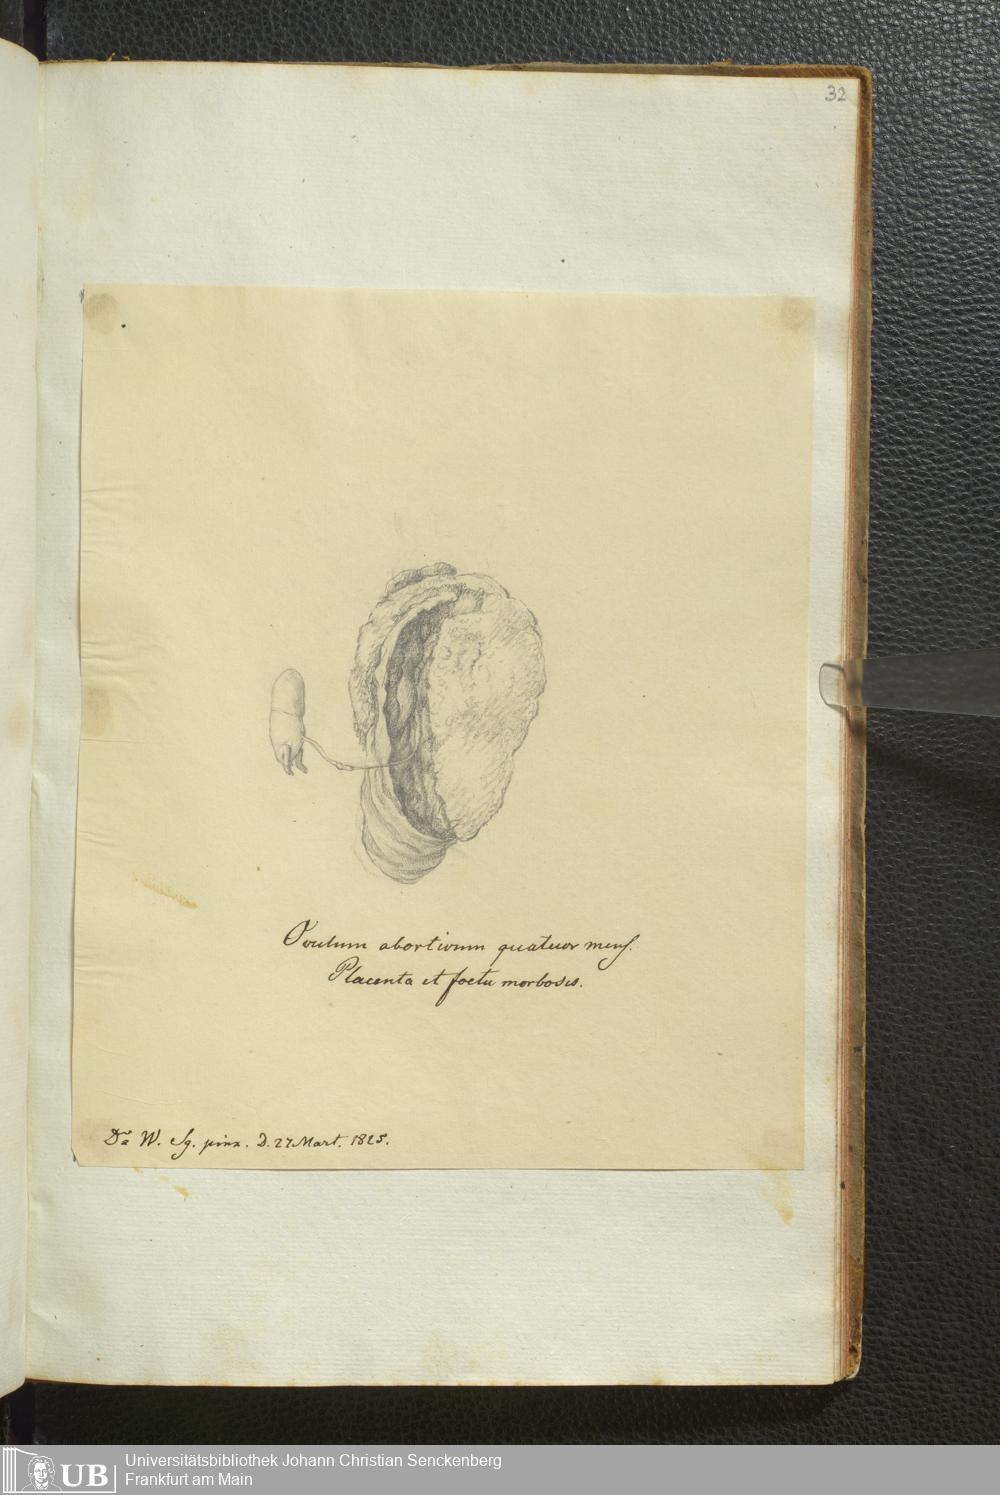 32
Ovulum abortivum quatuor mens.
Placenta et foetu morbosis.
W. Sg. pinx. D. 27 Mart. 1825.
UB
Universitätsbibliothek Johann Christian Senckenberg
Frankfurt am Main